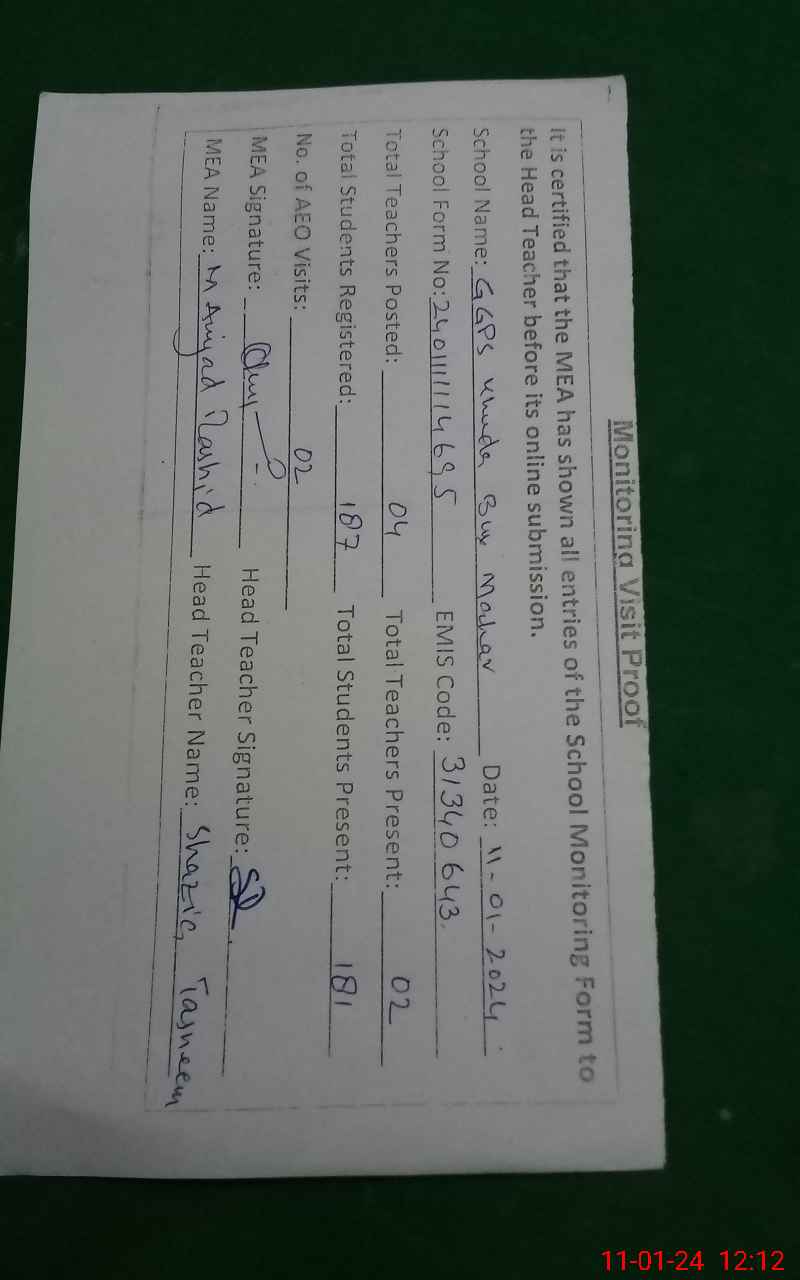 Monitoring Visit Proof
It is certified that the MEA has shown all entries of the School Monitoring Form to
the Head Teacher before its online submission.
School Name: GGPS Khuda Bux Machar Date: 11-01-2024
School Form No: 240111114695 EMIS Code: 31340643
Total Teachers Posted: 04 Total Teachers Present: 02
Total Students Registered: 187 Total Students Present: 181
No. of AEO Visits: 02
MEA Signature: Head Teacher Signature:
MEA Name: M Amjad Rashid Head Teacher Name: Shazia Tasneem
11-01-24 12:12